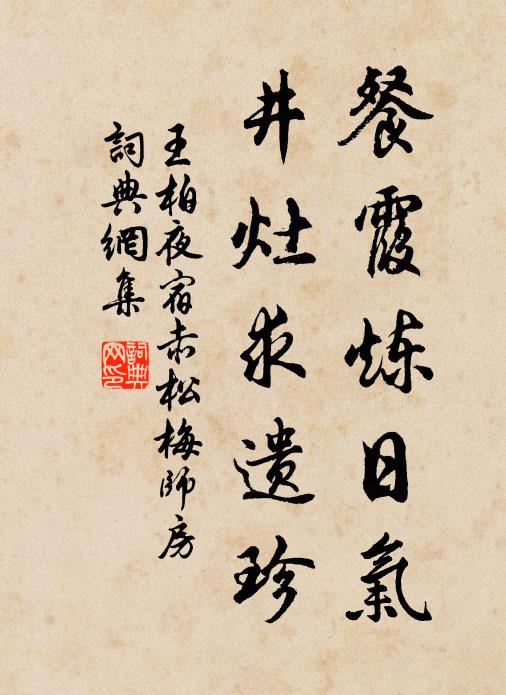 餐霞炼日氣
井灶求遗珍
王柏夜宿赤松梅師房
詞典網集
詞典網印